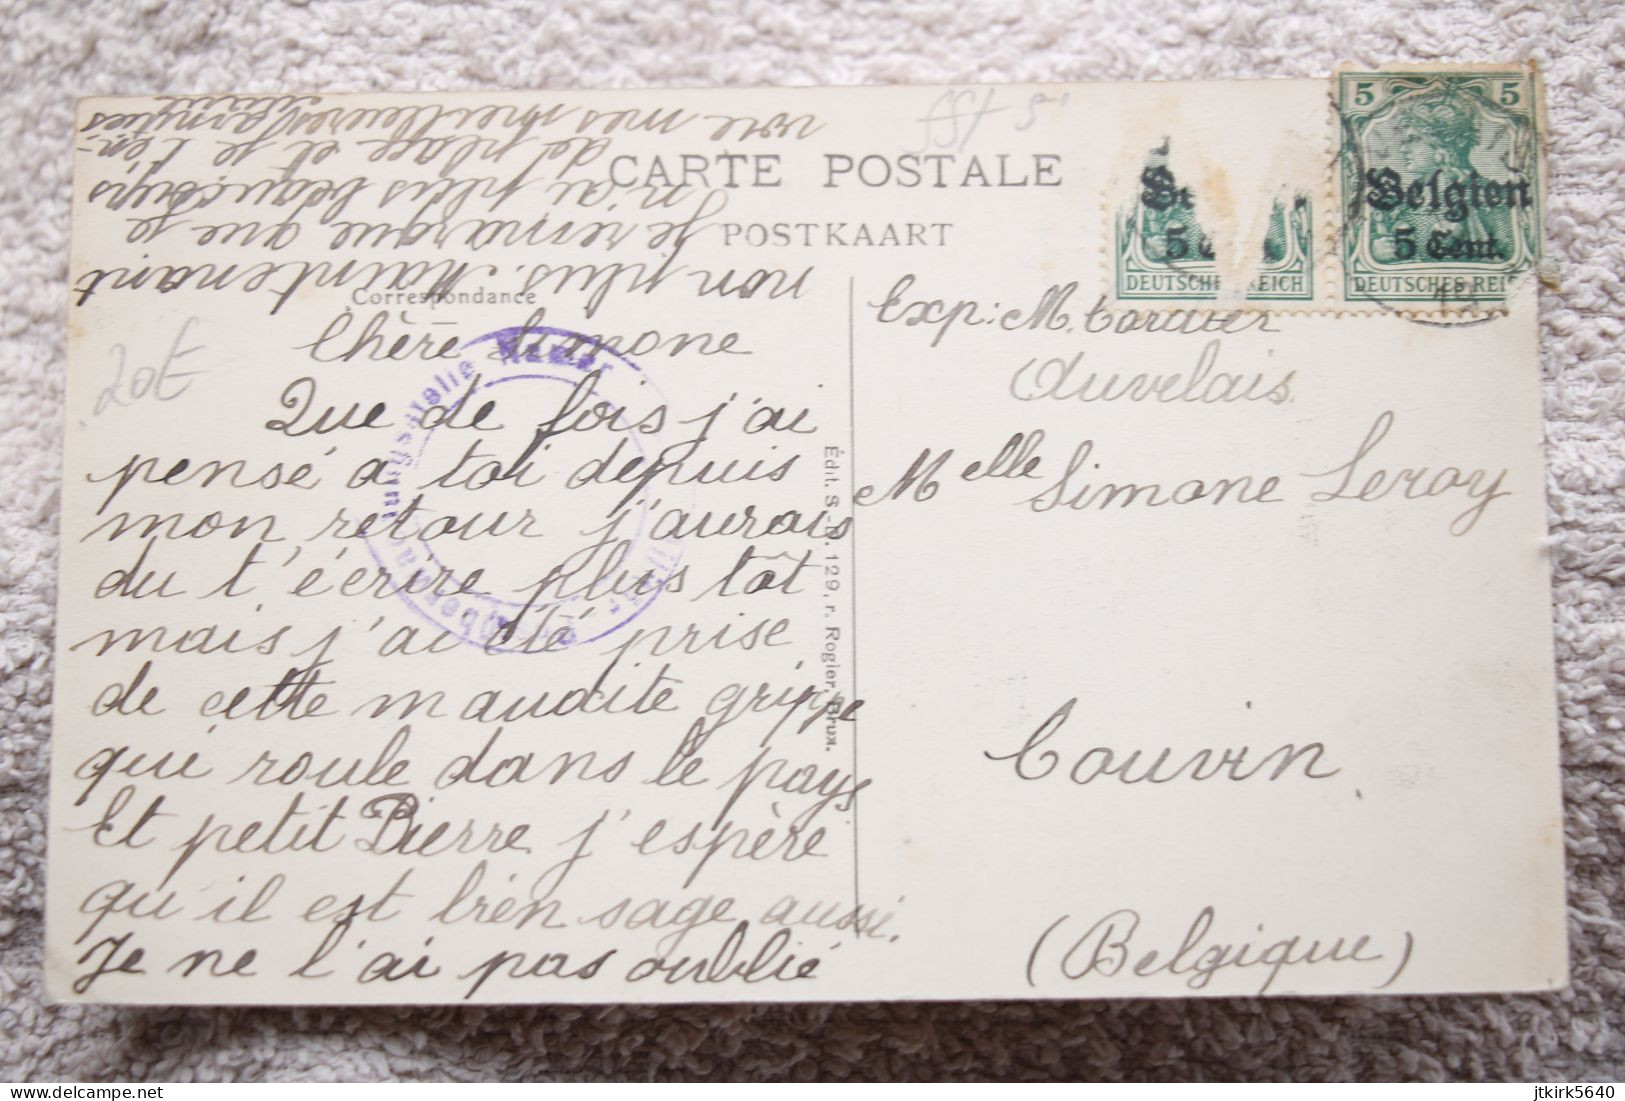 CARTE POSTALE
POSTKAART
Correspondance
Chère Simone
Que de fois j'ai
pensé à toi depuis
mon retour j'aurais
du t'écrire plus tôt
mais j'ai été prise
de cette maudite grippe
qui roule dans le pays
Et petit Pierre j'espère
qu'il est bien sage aussi.
Je ne l'ai pas oublié
non plus. Maintenant
je remarque que je
n'ai plus beaucoup
de place et je t'en-
voie mes meilleures amitiés
20€
Édit. S.-D. 129, r. Rogier, Brux.
5 5
Belgien
5 Cent.
DEUTSCHES REICH
5
DEUTSCHES REICH
Exp: M.
Auvelais
Melle Simone Leroy
Couvin
(Belgique)
jtkirk5640